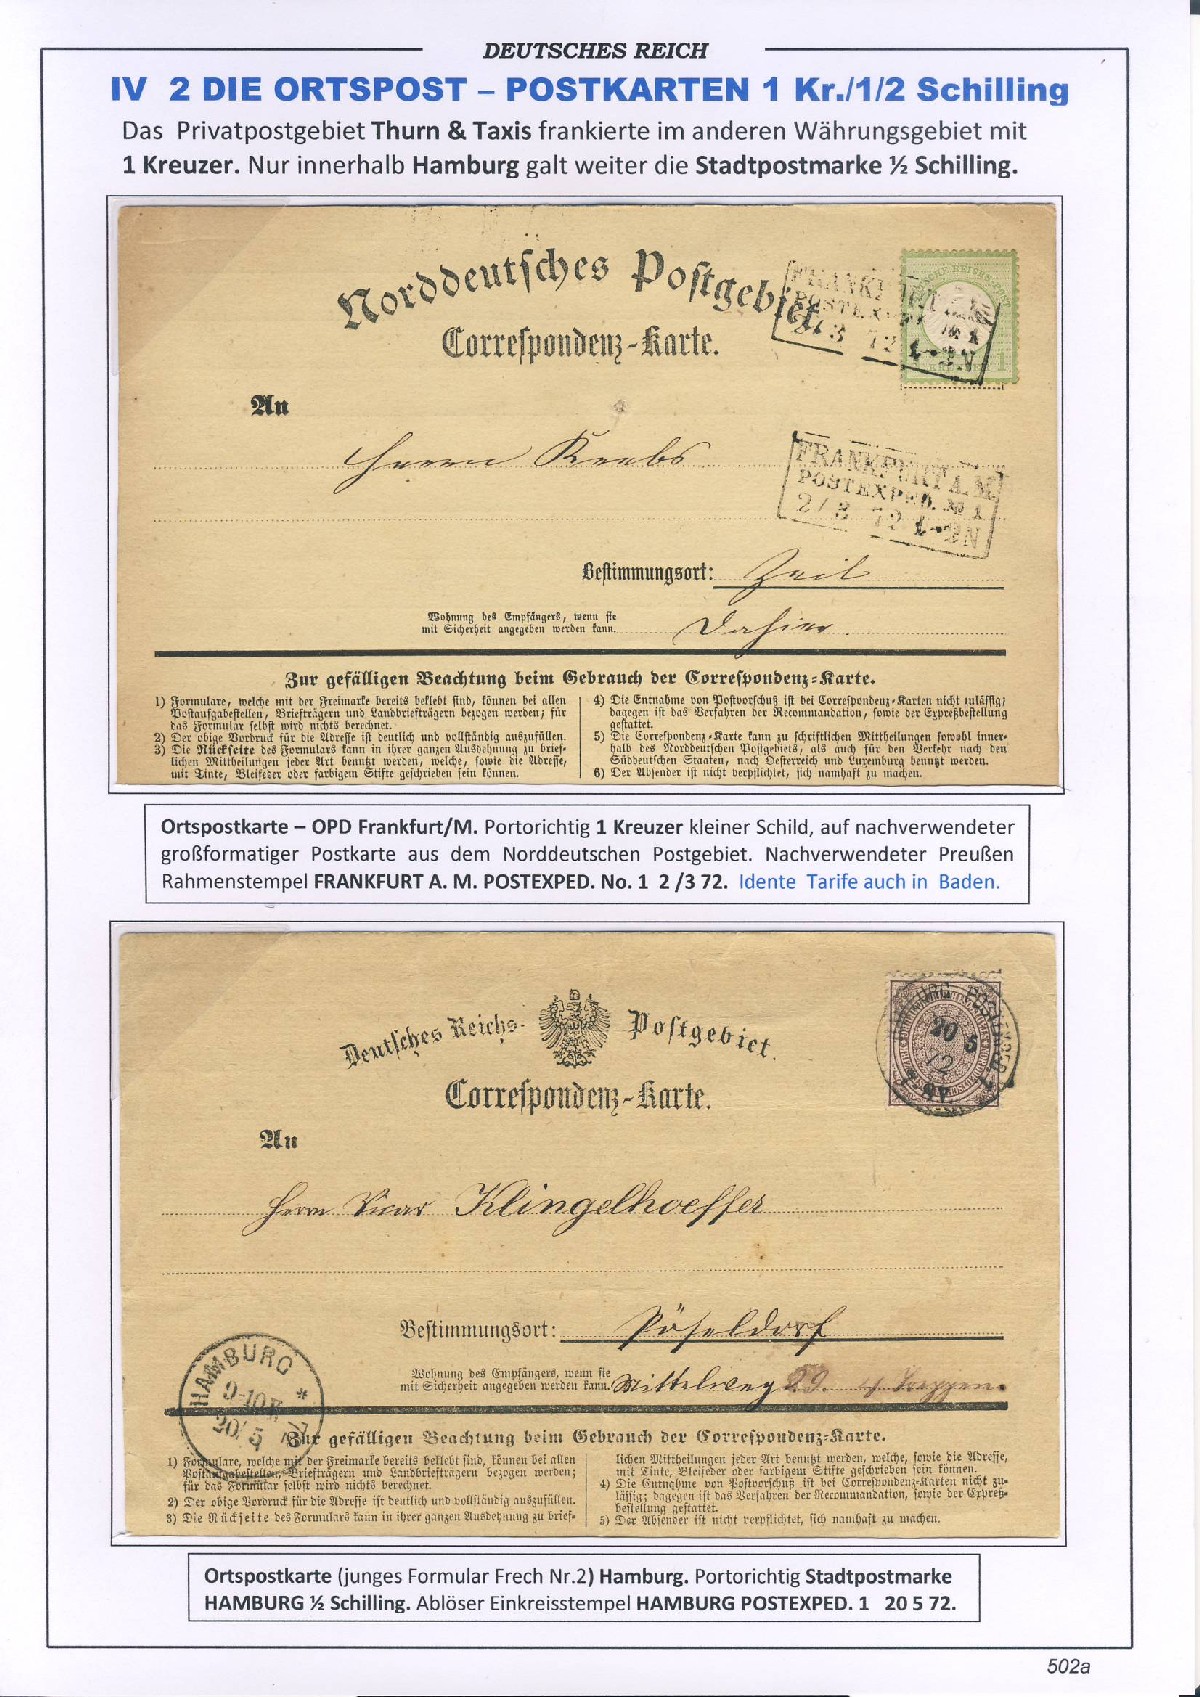 DEUTSCHES REICH
IV 2 DIE ORTSPOST – POSTKARTEN 1 Kr./1/2 Schilling
Das Privatpostgebiet Thurn & Taxis frankierte im anderen Währungsgebiet mit
1 Kreuzer. Nur innerhalb Hamburg galt weiter die Stadtpostmarke ½ Schilling.
Norddeutsches Postgebiet.
Correspondenz-Karte.
FRANKFURT A. M.
POSTEXPED. № 1
2/3 72 1-2N
An
Herrn Krebs
FRANKFURT A. M.
POSTEXPED. № 1
2/3 72 1-2N
Bestimmungsort: Zeil
Wohnung des Empfängers, wenn sie
mit Sicherheit angegeben werden kann.
Dahier
Zur gefälligen Beachtung beim Gebrauch der Correspondenz-Karte.
1) Formulare, welche mit der Freimarke bereits beklebt sind, können bei allen
Postaufgabestellen, Briefträgern und Landbriefträgern bezogen werden; für
das Formular selbst wird nichts berechnet.
2) Der obige Vordruck für die Adresse ist deutlich und vollständig auszufüllen.
3) Die Rückseite des Formulars kann in ihrer ganzen Ausdehnung zu brief-
lichen Mittheilungen jeder Art benutzt werden, welche, sowie die Adresse,
mit Tinte, Bleifeder oder farbigem Stifte geschrieben sein können.
4) Die Entnahme von Postvorschuß ist bei Correspondenz-Karten nicht zulässig;
dagegen ist das Verfahren der Recommandation, sowie der Expreßbestellung
gestattet.
5) Die Correspondenz-Karte kann zu schriftlichen Mittheilungen sowohl inner-
halb des Norddeutschen Postgebiets, als auch für den Verkehr nach den
Süddeutschen Staaten, nach Oesterreich und Luxemburg benutzt werden.
6) Der Absender ist nicht verpflichtet, sich namhaft zu machen.
Ortspostkarte – OPD Frankfurt/M. Portorichtig 1 Kreuzer kleiner Schild, auf nachverwendeter
großformatiger Postkarte aus dem Norddeutschen Postgebiet. Nachverwendeter Preußen
Rahmenstempel FRANKFURT A. M. POSTEXPED. No. 1 2 /3 72. Idente Tarife auch in Baden.
Deutsches Reichs-Postgebiet.
Correspondenz-Karte.
HAMBURG POSTEXPED. 1
20 5
72
An
Herrn Vicar Klingelhoeffer
Bestimmungsort: Pöseldorf
Wohnung des Empfängers, wenn sie
mit Sicherheit angegeben werden kann.
Mittelweg 59.
HAMBURG *
9-10
20/5
72
Zur gefälligen Beachtung beim Gebrauch der Correspondenz-Karte.
1) Formulare, welche mit der Freimarke bereits beklebt sind, können bei allen
Postaufgabestellen, Briefträgern und Landbriefträgern bezogen werden;
für das Formular selbst wird nichts berechnet.
2) Der obige Vordruck für die Adresse ist deutlich und vollständig auszufüllen.
3) Die Rückseite des Formulars kann in ihrer ganzen Ausdehnung zu brief-
lichen Mittheilungen jeder Art benutzt werden, welche, sowie die Adresse,
mit Tinte, Bleifeder oder farbigem Stifte geschrieben sein können.
4) Die Entnahme von Postvorschuß ist bei Correspondenz-Karten nicht zu-
lässig; dagegen ist das Verfahren der Recommandation, sowie der Expreß-
bestellung gestattet.
5) Der Absender ist nicht verpflichtet, sich namhaft zu machen.
Ortspostkarte (junges Formular Frech Nr.2) Hamburg. Portorichtig Stadtpostmarke
HAMBURG ½ Schilling. Ablöser Einkreisstempel HAMBURG POSTEXPED. 1 20 5 72.
502a